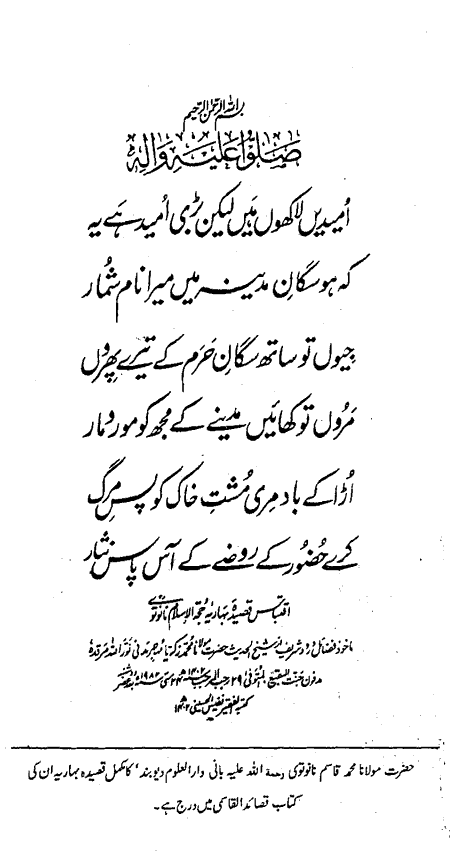 بسم اللہ الرحمٰن الرحیم
صَلُّوا عَلَیْہِ وَاٰلِہٖ
اُمیدیں لاکھوں ہَیں لیکن بڑی اُمید ہَے یہ
کہ ہو سگانِ مدینہ میں میرا نام شُمار
جیوں تو ساتھ سگانِ حَرَم کے تیرے پھروں
مَروں تو کھائیں مدینے کے مجھ کو مور و مار
اُڑا کے باد مِری مُشتِ خاک کو پسِ مرگ
کرے حُضُور کے روضے کے آس پاس نثار
اقتباس قصیدۂ بہاریہ حجۃ الاسلام نانوتویؒ
ماخوذ فضائل درود شریف از شیخ الحدیث حضرت مولانا محمد زکریا مہاجر مدنی نور اللہ مرقدہٗ
مدفون جنت البقیع المتوفی ۲۹ رجب المرجب ۱۴۰۲ھ ۲۴ مئی ۱۹۸۲ء
کتبہ الفقیر نفیس الحسینی ۱۴۰۲ھ
حضرت مولانا محمد قاسم نانوتوی رحمۃ اللہ علیہ بانی دارالعلوم دیوبند، کا مکمل قصیدہ بہاریہ ان کی
کتاب قصائد القاسمی میں درج ہے۔